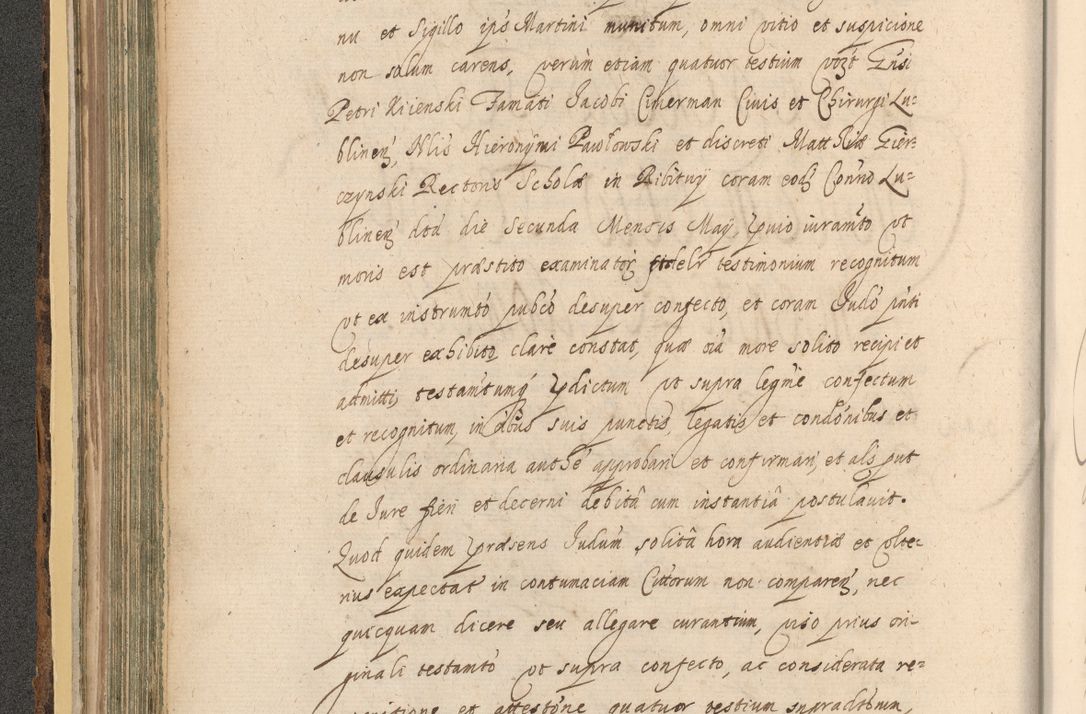 nu et Sigillo ips Martini munitum, omni vitio et suspicione
non solum carens, verùm etiam quatuor testium vozt Gnsi
Petri Kiienski Famati Jacobi Cimerman Civis et Chirurgi Lu=
blineñ, Nlis Hieronymi Pawłowski et discreti Matthiæ Gier=
czynski Rectoris Scholæ in Bibituÿ coram eod Conno Lu=
blineñ dtd die Secunda Mensis Maÿ, pvio iuramto vt
moris est præstito examinatoȝ fidelr testimonium recognitum
vt ex instrumto pubco desuper confecto, et coram Judo pnti
desuper exhibito, clarè constat, quæ oia more solito recipi et
admitti, testamtumq pdictum vt supra legme confectum
et recognitum, in oibus suis punctis, legatis et condonibus et
clausulis ordinaria authe approbari et confirmari, et als put
de Jure fieri et decerni debitâ cum instantiâ postulavit.
Quod quidem præsens Judum solitâ hora audientiæ et vlte=
rius expectat in contumaciam Cittorum non compareñ, nec
quicquam dicere seu allegare curantium, viso prius ori=
ginali testamto vt supra confecto, ac considerata re=
cognitione et attestone quatuor testium supradtorum,